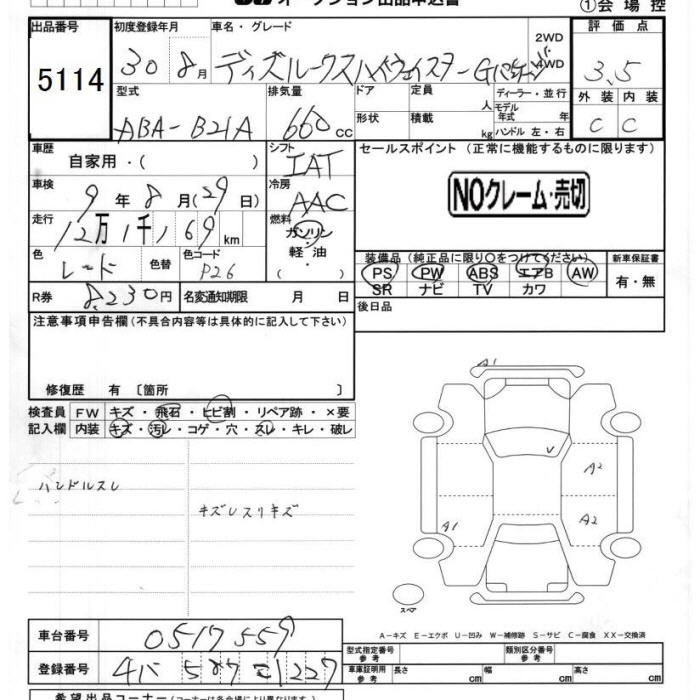 オークション出品申込書
①会場控
出品番号 5114
初度登録年月 30 8月
車名・グレード デイズルークスハイウェイスターG
2WD
4WD
評価点 3.5
外装 内装
C C
型式 ABA-B21A
排気量 660cc
ドア
定員 人
ディーラー・並行
モデル年式 年
形状
積載 kg
ハンドル 左・右
車歴 自家用・( )
シフト IAT
セールスポイント (正常に機能するものに限ります)
NOクレーム・売切
車検 9年8月(29日)
冷房 AAC
走行 12万1千169km
燃料 ガソリン
軽・油
( )
色 レッド
色替
色コード P26
装備品 (純正品に限り○をつけてください)
新車保証書
PS PW ABS エアB AW
SR ナビ TV カワ
有・無
R券 8,230円
名変通知期限 月 日
後日品
注意事項申告欄(不具合内容等は具体的に記入して下さい)
修復歴 有 〔箇所 〕
検査員記入欄
FW キズ・飛石・ヒビ割・リペア跡・×要
内装 キズ・汚レ・コゲ・穴・スレ・キレ・破レ
ハンドルスレ
キズレスリキズ
A1
A2
A1
A2
スペア
A-キズ E-エクボ U-凹み W-補修跡 S-サビ C-腐食 XX-交換済
車台番号 0517559
登録番号
型式指定番号
参考
類別区分番号
参考
車庫証明用
参考
長さ cm
幅 cm
高さ cm
希望出品コーナー(コーナーは各会場により異なります)